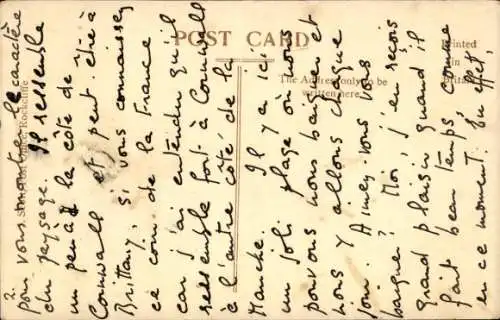 POST CARD
The Address only to be
written here.
Printed
in
2.
pour vous montrer le caractère
du paysage. Il ressemble
un peu à la côte de
Cornwall et peut-être à
Brittany, si vous connaissez
ce coin de la France
car j'ai entendu qu'il
ressemble fort à Cornwall
à l'autre côté de la
Manche. Il y a ici
un joli plage où nous
pouvons nous baigner et
nous y allons chaque
jour. Aimez-vous vous
baigner? Moi, j'en reçois
grand plaisir quand il
fait beau temps comme
en ce moment. En effet,